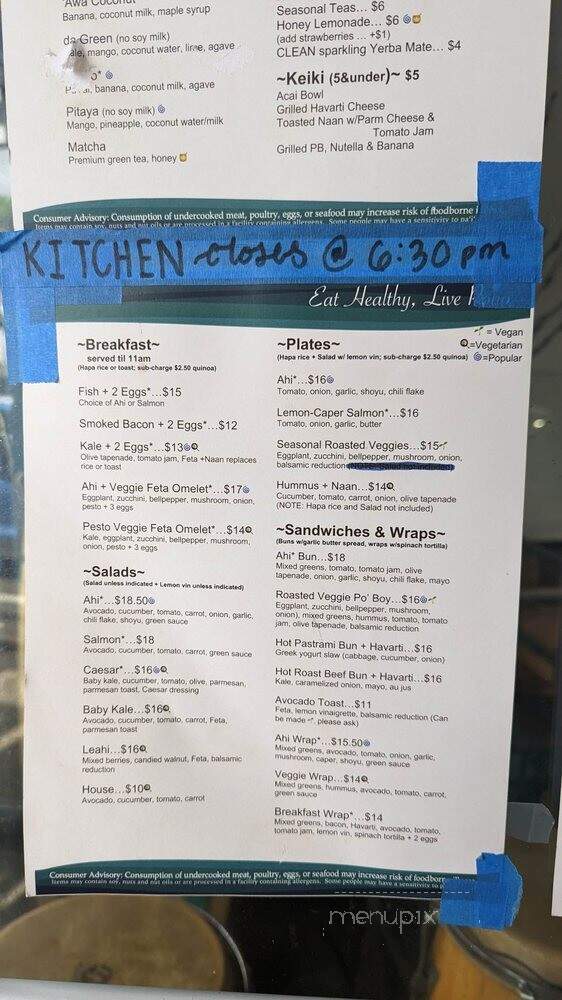 'Awa Coconut
Banana, coconut milk, maple syrup
da Green (no soy milk)
mango, coconut water, lime, agave
banana, coconut milk, agave
Pitaya (no soy milk)
Mango, pineapple, coconut water/milk
Matcha
Premium green tea, honey
Seasonal Teas... $6
Honey Lemonade... $6
(add strawberries ... +$1)
CLEAN sparkling Yerba Mate... $4
~Keiki (5&under)~ $5
Acai Bowl
Grilled Havarti Cheese
Toasted Naan w/Parm Cheese &
Tomato Jam
Grilled PB, Nutella & Banana
Consumer Advisory: Consumption of undercooked meat, poultry, eggs, or seafood may increase risk of foodborne
Items may contain soy, nuts and nut oils or are processed in a facility containing allergens. Some people may have a sensitivity to
KITCHEN closes @ 6:30 pm
Eat Healthy, Live
= Vegan
=Vegetarian
=Popular
~Breakfast~
served til 11am
(Hapa rice or toast; sub-charge $2.50 quinoa)
Fish + 2 Eggs*...$15
Choice of Ahi or Salmon
Smoked Bacon + 2 Eggs*...$12
Kale + 2 Eggs*...$13
Olive tapenade, tomato jam, Feta +Naan replaces
rice or toast
Ahi + Veggie Feta Omelet*...$17
Eggplant, zucchini, bellpepper, mushroom, onion,
pesto + 3 eggs
Pesto Veggie Feta Omelet*...$14
Kale, eggplant, zucchini, bellpepper, mushroom,
onion, pesto + 3 eggs
~Salads~
(Salad unless indicated + Lemon vin unless indicated)
Ahi*...$18.50
Avocado, cucumber, tomato, carrot, onion, garlic,
chili flake, shoyu, green sauce
Salmon*...$18
Avocado, cucumber, tomato, carrot, green sauce
Caesar*...$16
Baby kale, cucumber, tomato, olive, parmesan,
parmesan toast, Caesar dressing
Baby Kale...$16
Avocado, cucumber, tomato, carrot, Feta,
parmesan toast
Leahi...$16
Mixed berries, candied walnut, Feta, balsamic
reduction
House...$10
Avocado, cucumber, tomato, carrot
~Plates~
(Hapa rice + Salad w/ lemon vin; sub-charge $2.50 quinoa)
Ahi*...$16
Tomato, onion, garlic, shoyu, chili flake
Lemon-Caper Salmon*...$16
Tomato, onion, garlic, butter
Seasonal Roasted Veggies...$15
Eggplant, zucchini, bellpepper, mushroom, onion,
balsamic reduction (NOTE: Salad not included)
Hummus + Naan...$14
Cucumber, tomato, carrot, onion, olive tapenade
(NOTE: Hapa rice and Salad not included)
~Sandwiches & Wraps~
(Buns w/garlic butter spread, wraps w/spinach tortilla)
Ahi* Bun...$18
Mixed greens, tomato, tomato jam, olive
tapenade, onion, garlic, shoyu, chili flake, mayo
Roasted Veggie Po' Boy...$16
Eggplant, zucchini, bellpepper, mushroom,
onion), mixed greens, hummus, tomato, tomato
jam, olive tapenade, balsamic reduction
Hot Pastrami Bun + Havarti...$16
Greek yogurt slaw (cabbage, cucumber, onion)
Hot Roast Beef Bun + Havarti...$16
Kale, caramelized onion, mayo, au jus
Avocado Toast...$11
Feta, lemon vinaigrette, balsamic reduction (Can
be made , please ask)
Ahi Wrap*...$15.50
Mixed greens, avocado, tomato, onion, garlic,
mushroom, caper, shoyu, green sauce
Veggie Wrap...$14
Mixed greens, hummus, avocado, tomato, carrot,
green sauce
Breakfast Wrap*...$14
Mixed greens, bacon, Havarti, avocado, tomato,
tomato jam, lemon vin, spinach tortilla + 2 eggs
Consumer Advisory: Consumption of undercooked meat, poultry, eggs, or seafood may increase risk of
Items may contain soy, nuts and nut oils or are processed in a facility containing allergens. Some people may have a sensitivity to
menupix